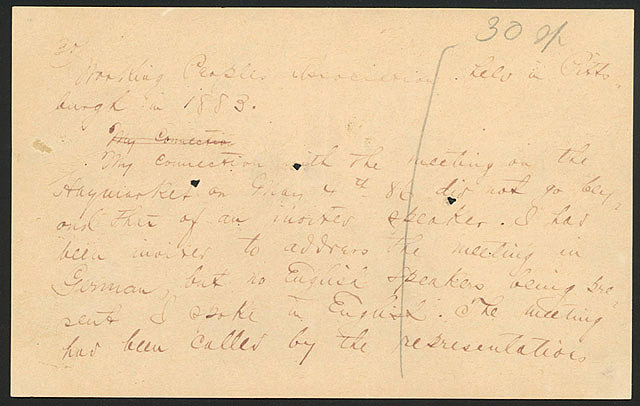 30 sp
30
Working Peoples Association held in Pitts-
burgh in 1883.
My Connection
My connection with the meeting on the
Haymarket on May 4th 86 did not go bey-
ond that of an invited speaker. I had
been invited to address the meeting in
German, but no English speakers being pre-
sent I spoke in English. The meeting
had been called by the representations